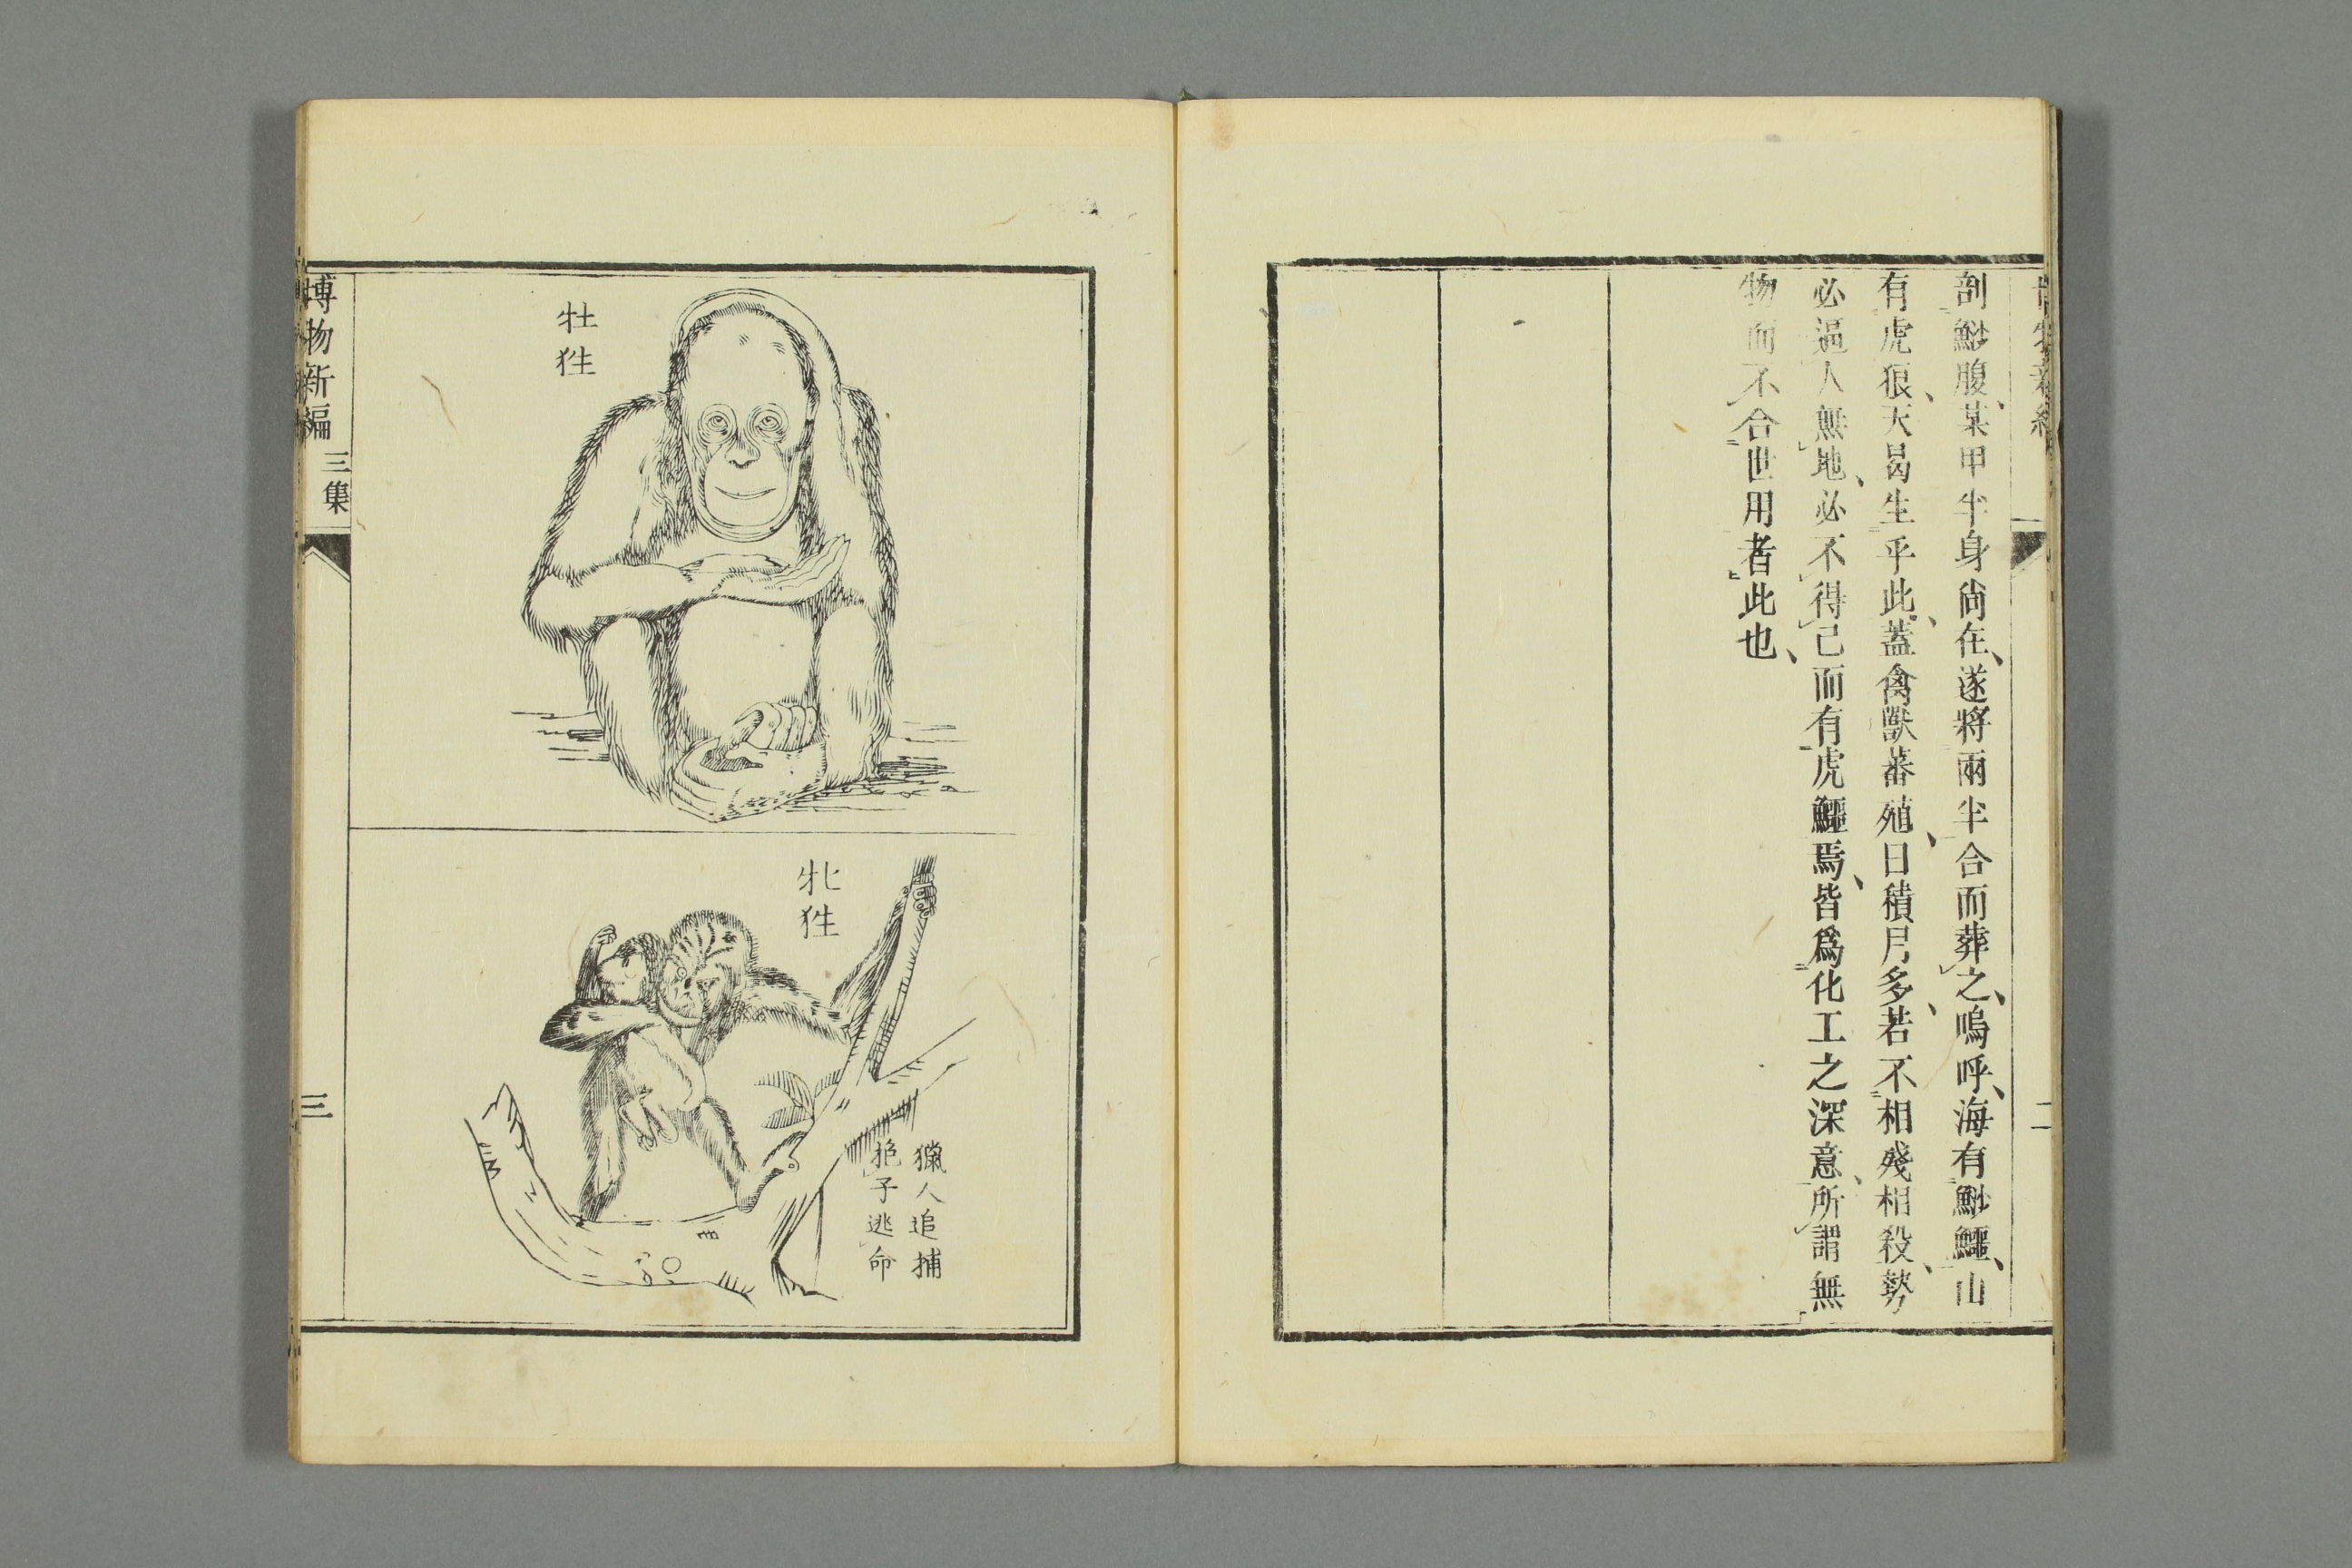 剖魦腹、某甲半身尙在、遂將兩半合而葬之、嗚呼、海有魦鱷、山
有虎狼、天曷生乎此、蓋禽獸蕃殖、日積月多、若不相殘相殺、勢
必逼人無地、必不得已而有虎鱷焉、皆爲化工之深意、所謂無
物而不合世用者此也、
二
牡狌
牝狌
獵人追捕
抱子逃命
博物新編
三集
三